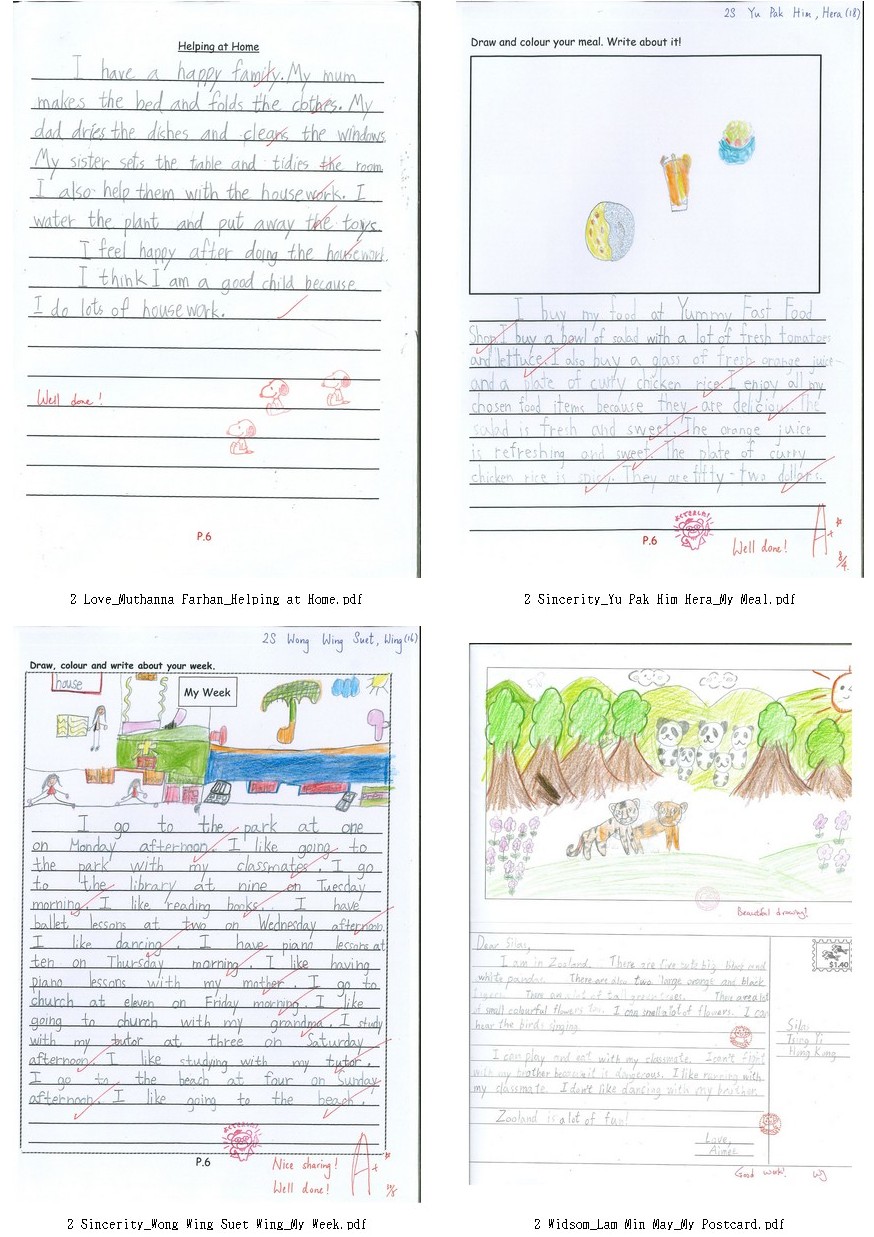 Helping at Home
I have a happy family. My mum
makes the bed and folds the clothes. My
dad dries the dishes and cleans the windows.
My sister sets the table and tidies the room.
I also help them with the housework. I
water the plant and put away the toys.
I feel happy after doing the housework.
I think I am a good child because
I do lots of housework.
Well done!
P.6
2 Love_Muthanna Farhan_Helping at Home.pdf
2S Yu Pak Him, Hera (18)
Draw and colour your meal. Write about it!
I buy my food at Yummy Fast Food
Shop. I buy a bowl of salad with a lot of fresh tomatoes
and lettuce. I also buy a glass of fresh orange juice
and a plate of curry chicken rice. I enjoy all my
chosen food items because they are delicious. The
salad is fresh and sweet. The orange juice
is refreshing and sweet. The plate of curry
chicken rice is spicy. They are fifty-two dollars.
P.6
Well done!
A+
2 Sincerity_Yu Pak Him Hera_My Meal.pdf
2S Wong Wing Suet, Wing (16)
Draw, colour and write about your week.
house
My Week
I go to the park at one
on Monday afternoon. I like going to
the park with my classmates. I go
to the library at nine on Tuesday
morning. I like reading books. I have
ballet lessons at two on Wednesday afternoon.
I like dancing. I have piano lessons at
ten on Thursday morning. I like having
piano lessons with my mother. I go to
church at eleven on Friday morning. I like
going to church with my grandma. I study
with my tutor at three on Saturday
afternoon. I like studying with my tutor.
I go to the beach at four on Sunday
afternoon. I like going to the beach.
P.6
Nice sharing!
Well done!
A+
2 Sincerity_Wong Wing Suet Wing_My Week.pdf
Beautiful drawing!
Dear Silas,
I am in Zooland. There are five cute big black and
white pandas. There are also two large orange and black
tigers. There are a lot of tall green trees. There are a lot
of small colourful flowers too. I can smell a lot of flowers. I can
hear the birds singing.
I can play and eat with my classmate. I can't fight
with my brother because it is dangerous. I like running with
my classmate. I don't like dancing with my brother.
Zooland is a lot of fun!
Love,
Aimee
$1.40
Silas
Tsing Yi
Hong Kong
Good work!
2 Widsom_Lam Min May_My Postcard.pdf